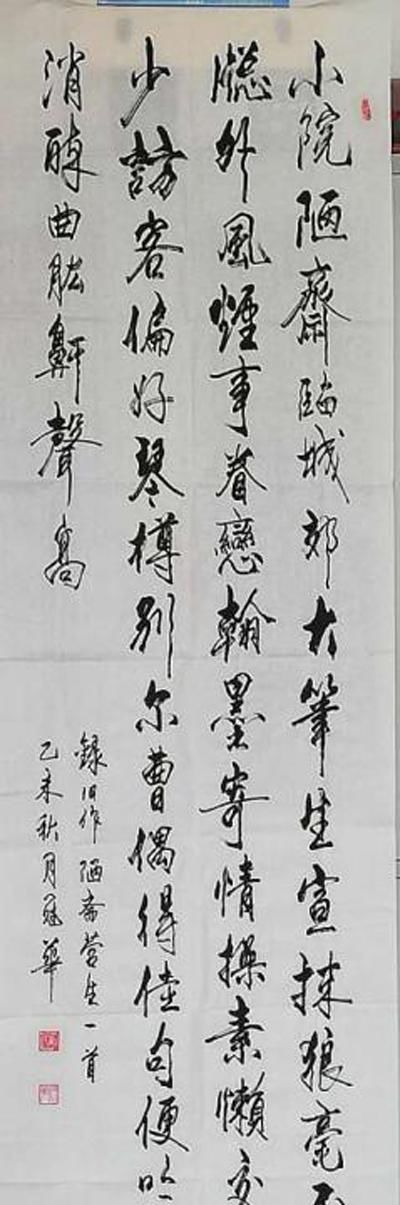 小院陋齋臨城郊大筆生宣抹狼毫不
牕外風煙事眷戀翰墨寄情操素懶交
少訪客偏好琴樽別尔曹偶得佳句便吟
消醉曲肱鼾聲高
録旧作陋斋营生一首
乙未秋月冠華